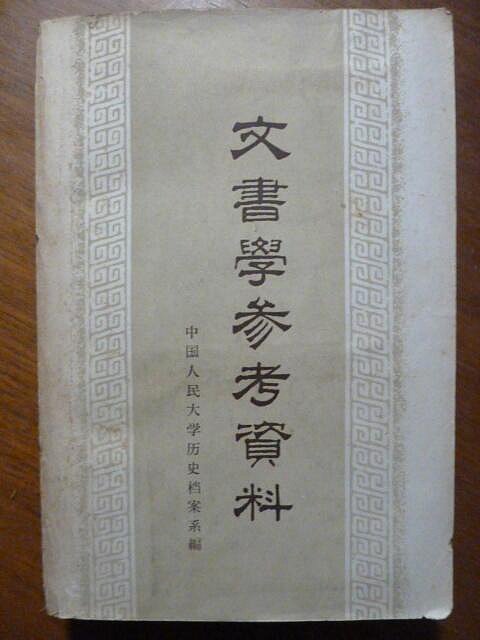 文書學参考資料
中国人民大学历史档案系編